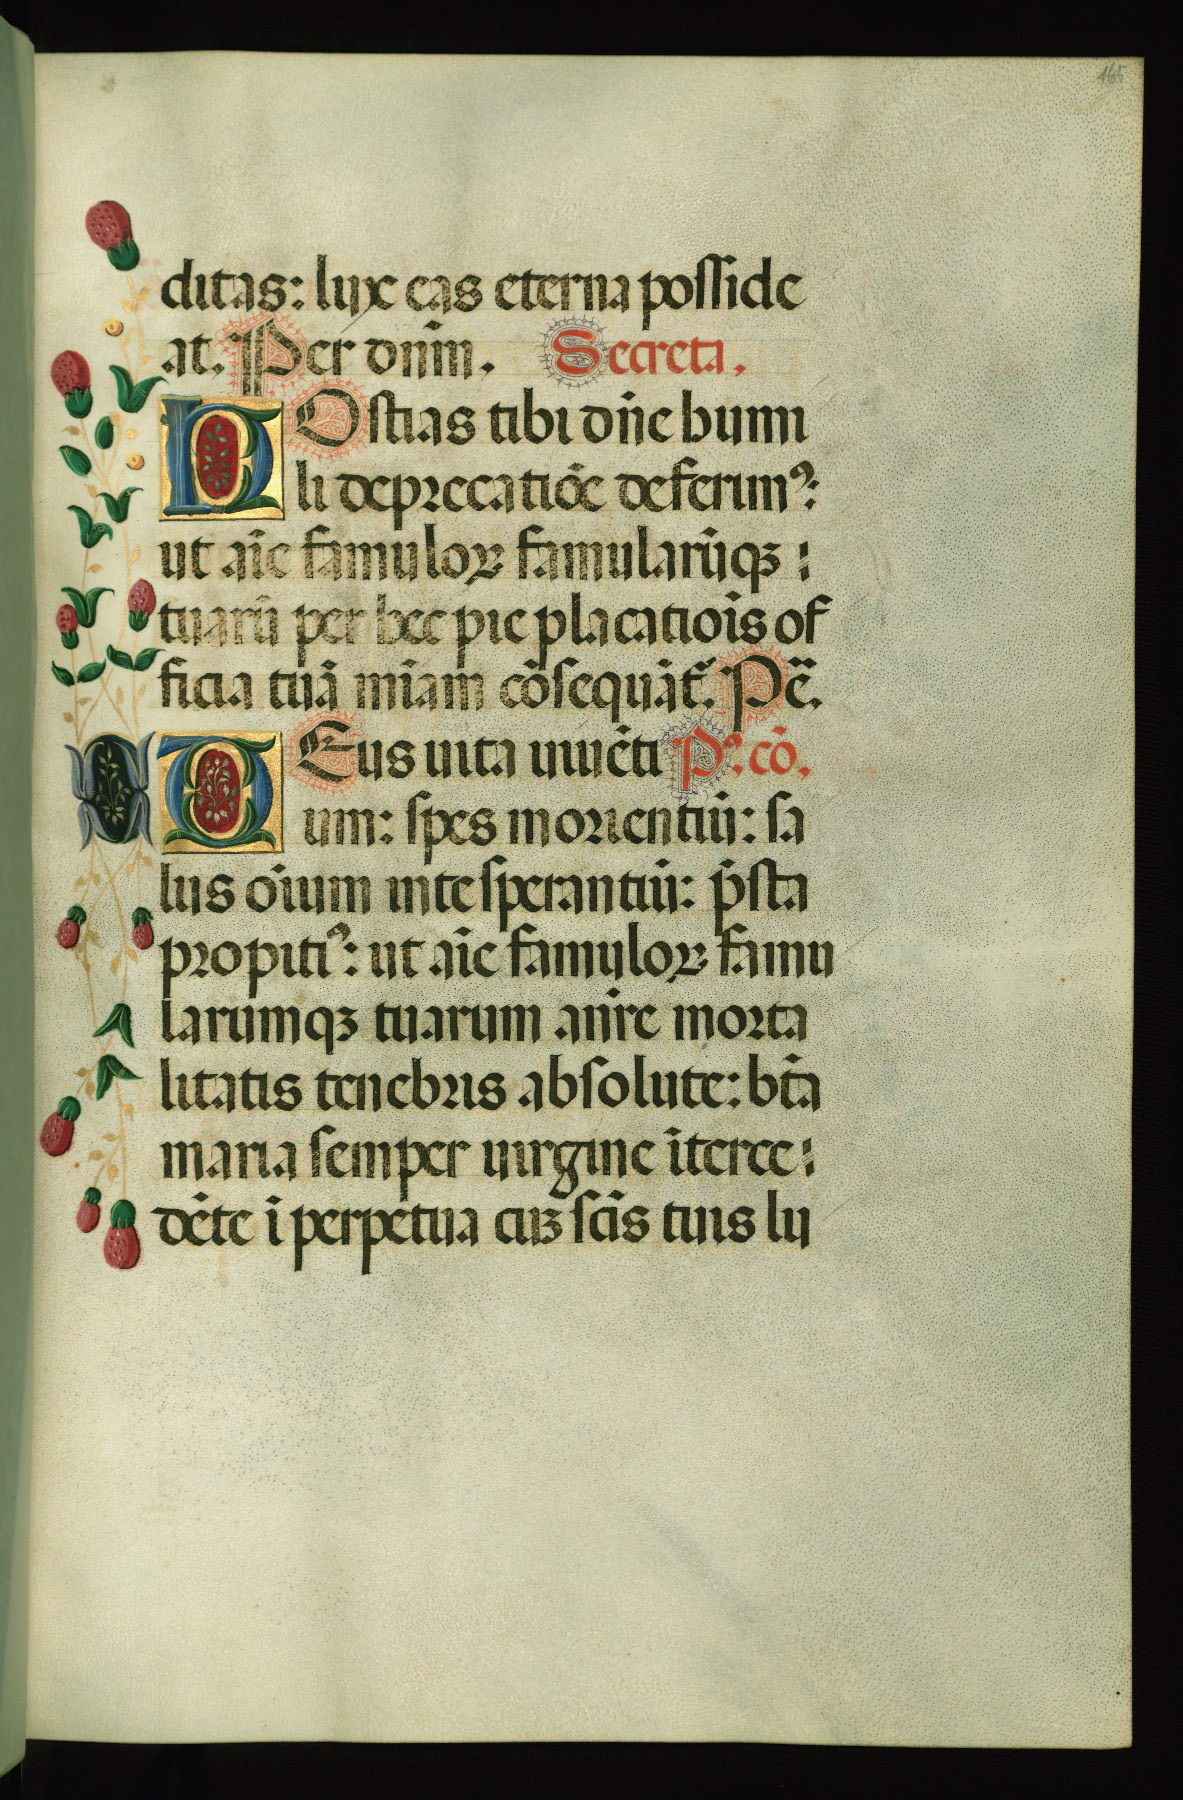 165
ditas: lux eas eterna posside
at. Per dñm. Secreta.
HOstias tibi dñe humi
li deprecatiõe deferimꝰ:
ut aĩe famuloꝝ famularũqꝫ
tuarũ per hec pie placatiõis of
ficia tuã mĩam cõsequãt̃. Pẽ.
DEus uita uiuẽti Pꝰ. cõ.
um: spes morientiũ: sa
lus oĩum in te sperantiũ: p̃sta
propitiꝰ: ut aĩe famuloꝝ famu
larumqꝫ tuarum a nr̃e morta
litatis tenebris absolute: bt̃a
maria semper uirgine ĩterce
dẽte ĩ perpetua cuꝫ scĩs tuis lu